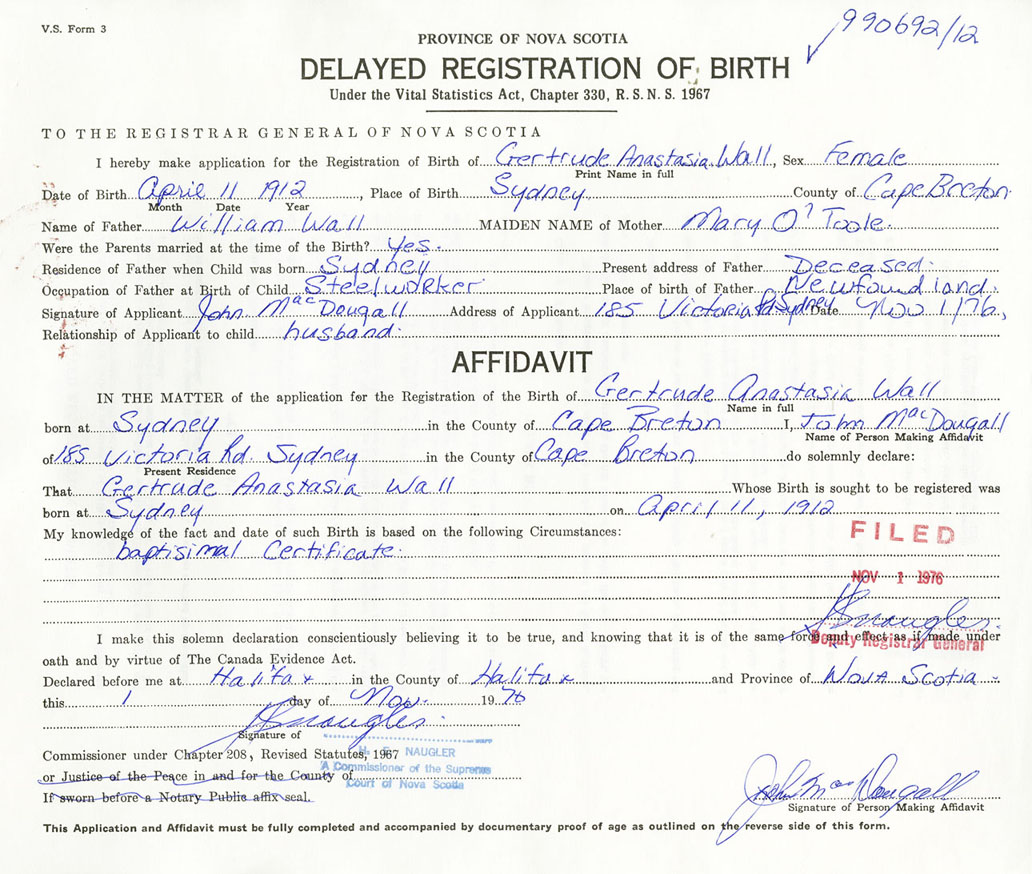 V.S. Form 3
990692/12
PROVINCE OF NOVA SCOTIA
DELAYED REGISTRATION OF BIRTH
Under the Vital Statistics Act, Chapter 330, R.S.N.S. 1967
TO THE REGISTRAR GENERAL OF NOVA SCOTIA
I hereby make application for the Registration of Birth of Gertrude Anastasia Wall, Sex Female
Print Name in full
Date of Birth April 11 1912, Place of Birth Sydney County of Cape Breton
Month Date Year
Name of Father William Wall MAIDEN NAME of Mother Mary O'Toole.
Were the Parents married at the time of the Birth? Yes.
Residence of Father when Child was born Sydney Present address of Father Deceased.
Occupation of Father at Birth of Child Steelworker Place of birth of Father Newfoundland.
Signature of Applicant John MacDougall Address of Applicant 185 Victoria Rd Sydney Date Nov 1/76.
Relationship of Applicant to child husband.
AFFIDAVIT
IN THE MATTER of the application for the Registration of the Birth of Gertrude Anastasia Wall
Name in full
born at Sydney in the County of Cape Breton I, John MacDougall
Name of Person Making Affidavit
of 185 Victoria Rd. Sydney in the County of Cape Breton do solemnly declare:
Present Residence
That Gertrude Anastasia Wall Whose Birth is sought to be registered was
born at Sydney on April 11, 1912
My knowledge of the fact and date of such Birth is based on the following Circumstances:
baptisimal Certificate.
FILED
NOV 1 1976
Deputy Registrar General
I make this solemn declaration conscientiously believing it to be true, and knowing that it is of the same force and effect as if made under
oath and by virtue of The Canada Evidence Act.
Declared before me at Halifax in the County of Halifax and Province of Nova Scotia
this 1 day of Nov. 1976
Signature of
Commissioner under Chapter 208, Revised Statutes, 1967
NAUGLER
A Commissioner of the Supreme
Court of Nova Scotia
or Justice of the Peace in and for the County of
If sworn before a Notary Public affix seal.
John MacDougall
Signature of Person Making Affidavit
This Application and Affidavit must be fully completed and accompanied by documentary proof of age as outlined on the reverse side of this form.